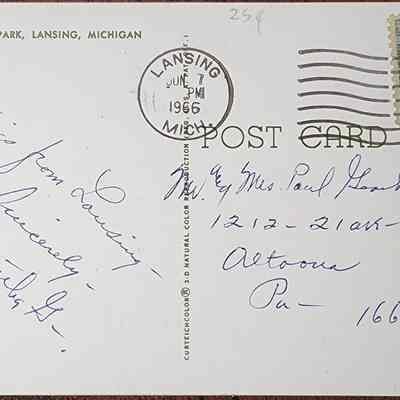 25¢
PARK, LANSING, MICHIGAN
LANSING
JUN 7
PM
1966
MICH.
POST CARD
from Lansing-
Sincerely-
G-
Mr. & Mrs. Paul
1212-21
Altoona
Pa-
166
CURTEICHCOLOR® 3-D NATURAL COLOR REPRODUCTION